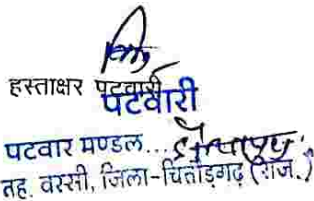 हस्ताक्षर पटवारी
पटवारी
पटवार मण्डल...
तह. वस्सी, जिला-चित्तौड़गढ़ (राज.)